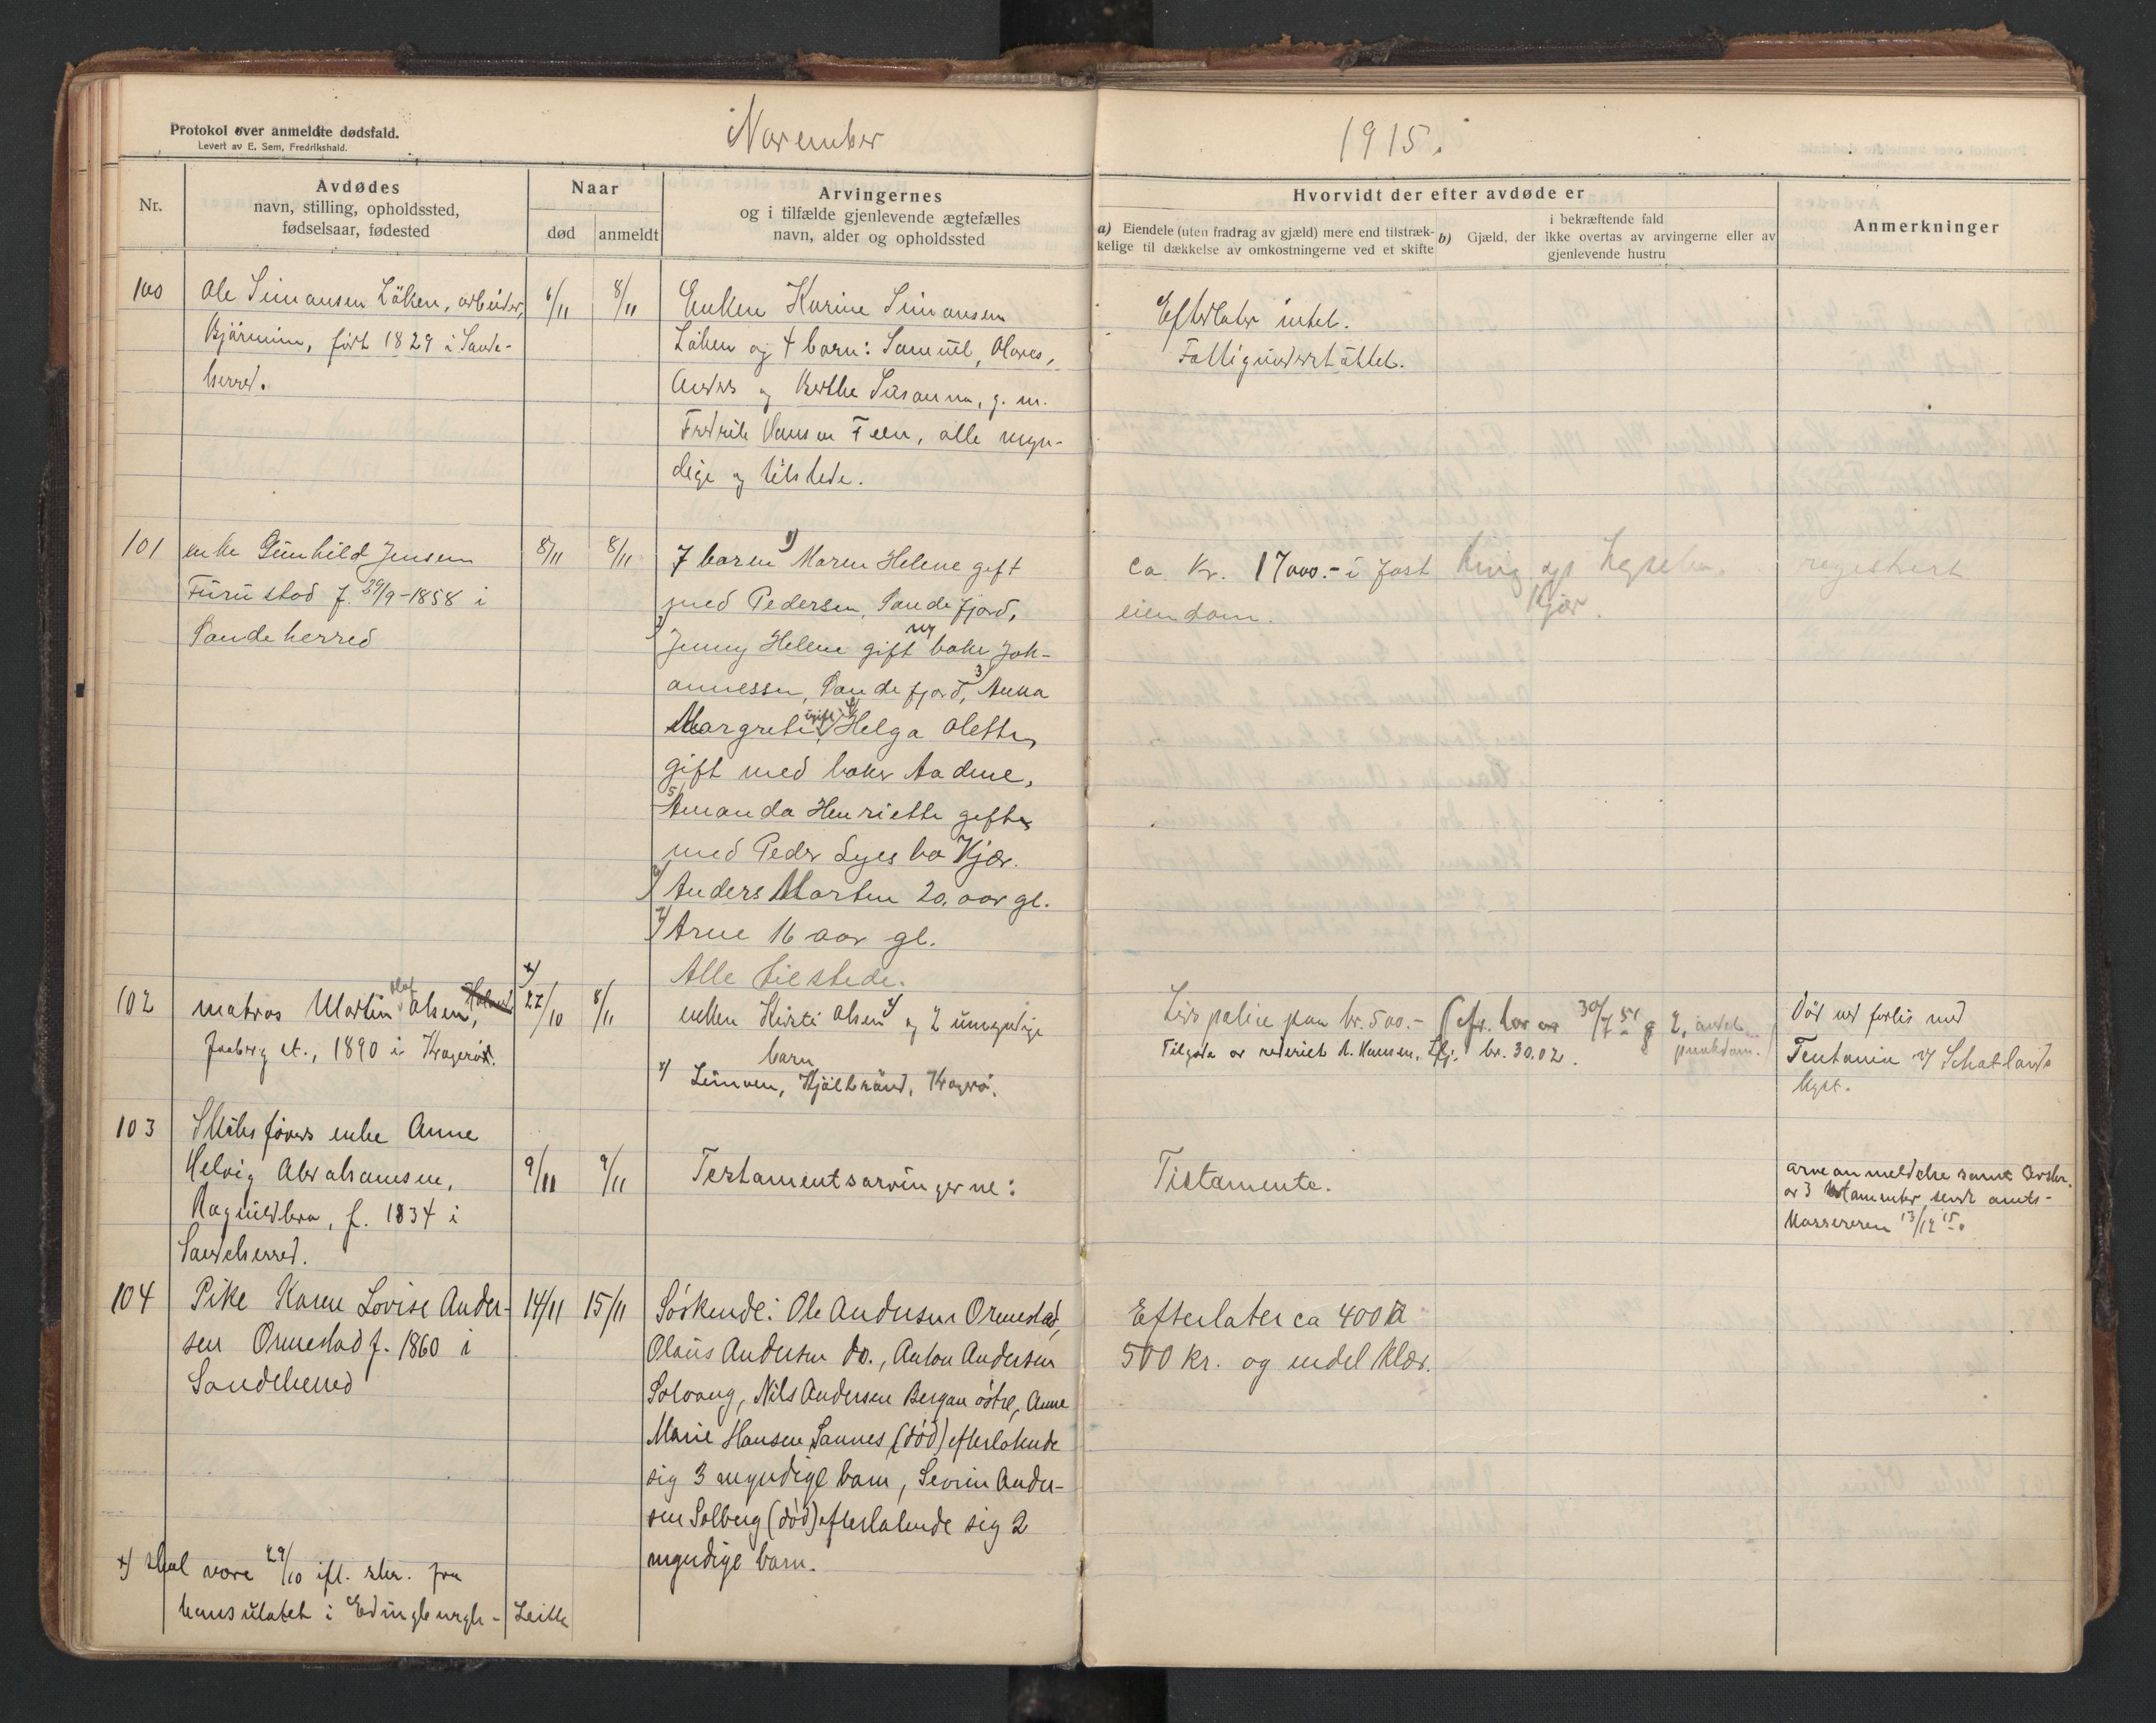 Protokol over anmeldte dødsfald.
Levert av E. Sem, Fredrikshald.
November
1915.
Nr.
Avdødes
navn, stilling, opholdssted,
fødselsaar, fødested
Naar
død
anmeldt
Arvingernes
og i tilfælde gjenlevende ægtefælles
navn, alder og opholdssted
Hvorvidt der efter avdøde er
a) Eiendele (uten fradrag av gjæld) mere end tilstræk-
kelige til dækkelse av omkostningerne ved et skifte
i bekræftende fald
b) Gjæld, der ikke overtas av arvingerne eller av
gjenlevende hustru
Anmerkninger
100
Ole Simonsen Löken, arbeider,
født 1829 i Sande-
herred.
6/11
8/11
Enken Karine Simonsen
Löken og 4 barn: Samuel, Olaves,
Anders og Berthe Susanna, g. m.
Fredrik Hansen Feen, alle myn-
dige og tilstede.
Efterlater intet.
Fattigunderstöttet.
101
enke Gunhild Jensen
Furustad f. 29/9-1858 i
Sandeherred
8/11
8/11
7 barn 1) Maren Helene gift
med Pedersen, Sandefjord,
2) Jenny Helene gift m baker Joh-
annessen, Sandefjord, 3) Anna
Margrete, ugift, 4) Helga Olette,
gift med baker Aadne,
5) Amanda Henriette gift
med Peder Kjær.
6) Anders Marten 20. aar gl.
7) Arne 16 aar gl.
Alle tilstede.
ca. kr. 17000.- i fast
eiendom.
Kjær.
registrert
102
matros Martin Olaf Olsen,
1890 i Kragerø.
x)
22/10
8/11
enken Kirsti Olsen x) og 2 umyndige
barn
x) Kragrø.
Livspolice paa kr. 500.- (cfr. lov av 30/7 § 2,
Tilgode av rederiet kr. 30.02.
Död ved forlis med
Teutonia v/ Schotlands
kyst.
103
Skibsførers enke Anne
Helvig Abrahamsen,
f. 1834 i
Sandeherred.
9/11
9/11
Testamentsarvingerne:
Testamente.
arveanmeldelse samt
av 3 testamenter sendt amts-
kassereren 13/12 15.
104
Pike Karen Lovise Ander-
sen Ormestad f. 1860 i
Sandeherred
14/11
15/11
Söskende: Ole Andersen Ormestad,
Olaus Andersen do., Anton Andersen
Solvang, Nils Andersen Bergan østre, Anne
Marie Hansen Sannes (død) efterlatende
sig 3 myndige barn, Severin Ander-
sen Solberg (død) efterlatende sig 2
myndige barn.
Efterlater ca 400 à
500 kr. og endel klær.
x) skal være 29/10 ifl. skr. fra
konsulatet i Edingburgh - Leith